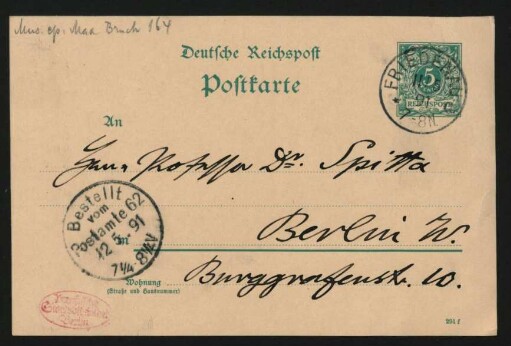 Mus. ep. Max Bruch 164
Deutsche Reichspost
Postkarte
FRIEDENAU
5
REICHSPOST
91
7-8N.
An
Herrn Professor Dr. Spitta
Bestellt
vom
Postamte 62
12. 5. 91
7¼-8½V
in
Berlin W.
Burggrafenstr. 10.
Wohnung
(Straße und Hausnummer)
Berlin